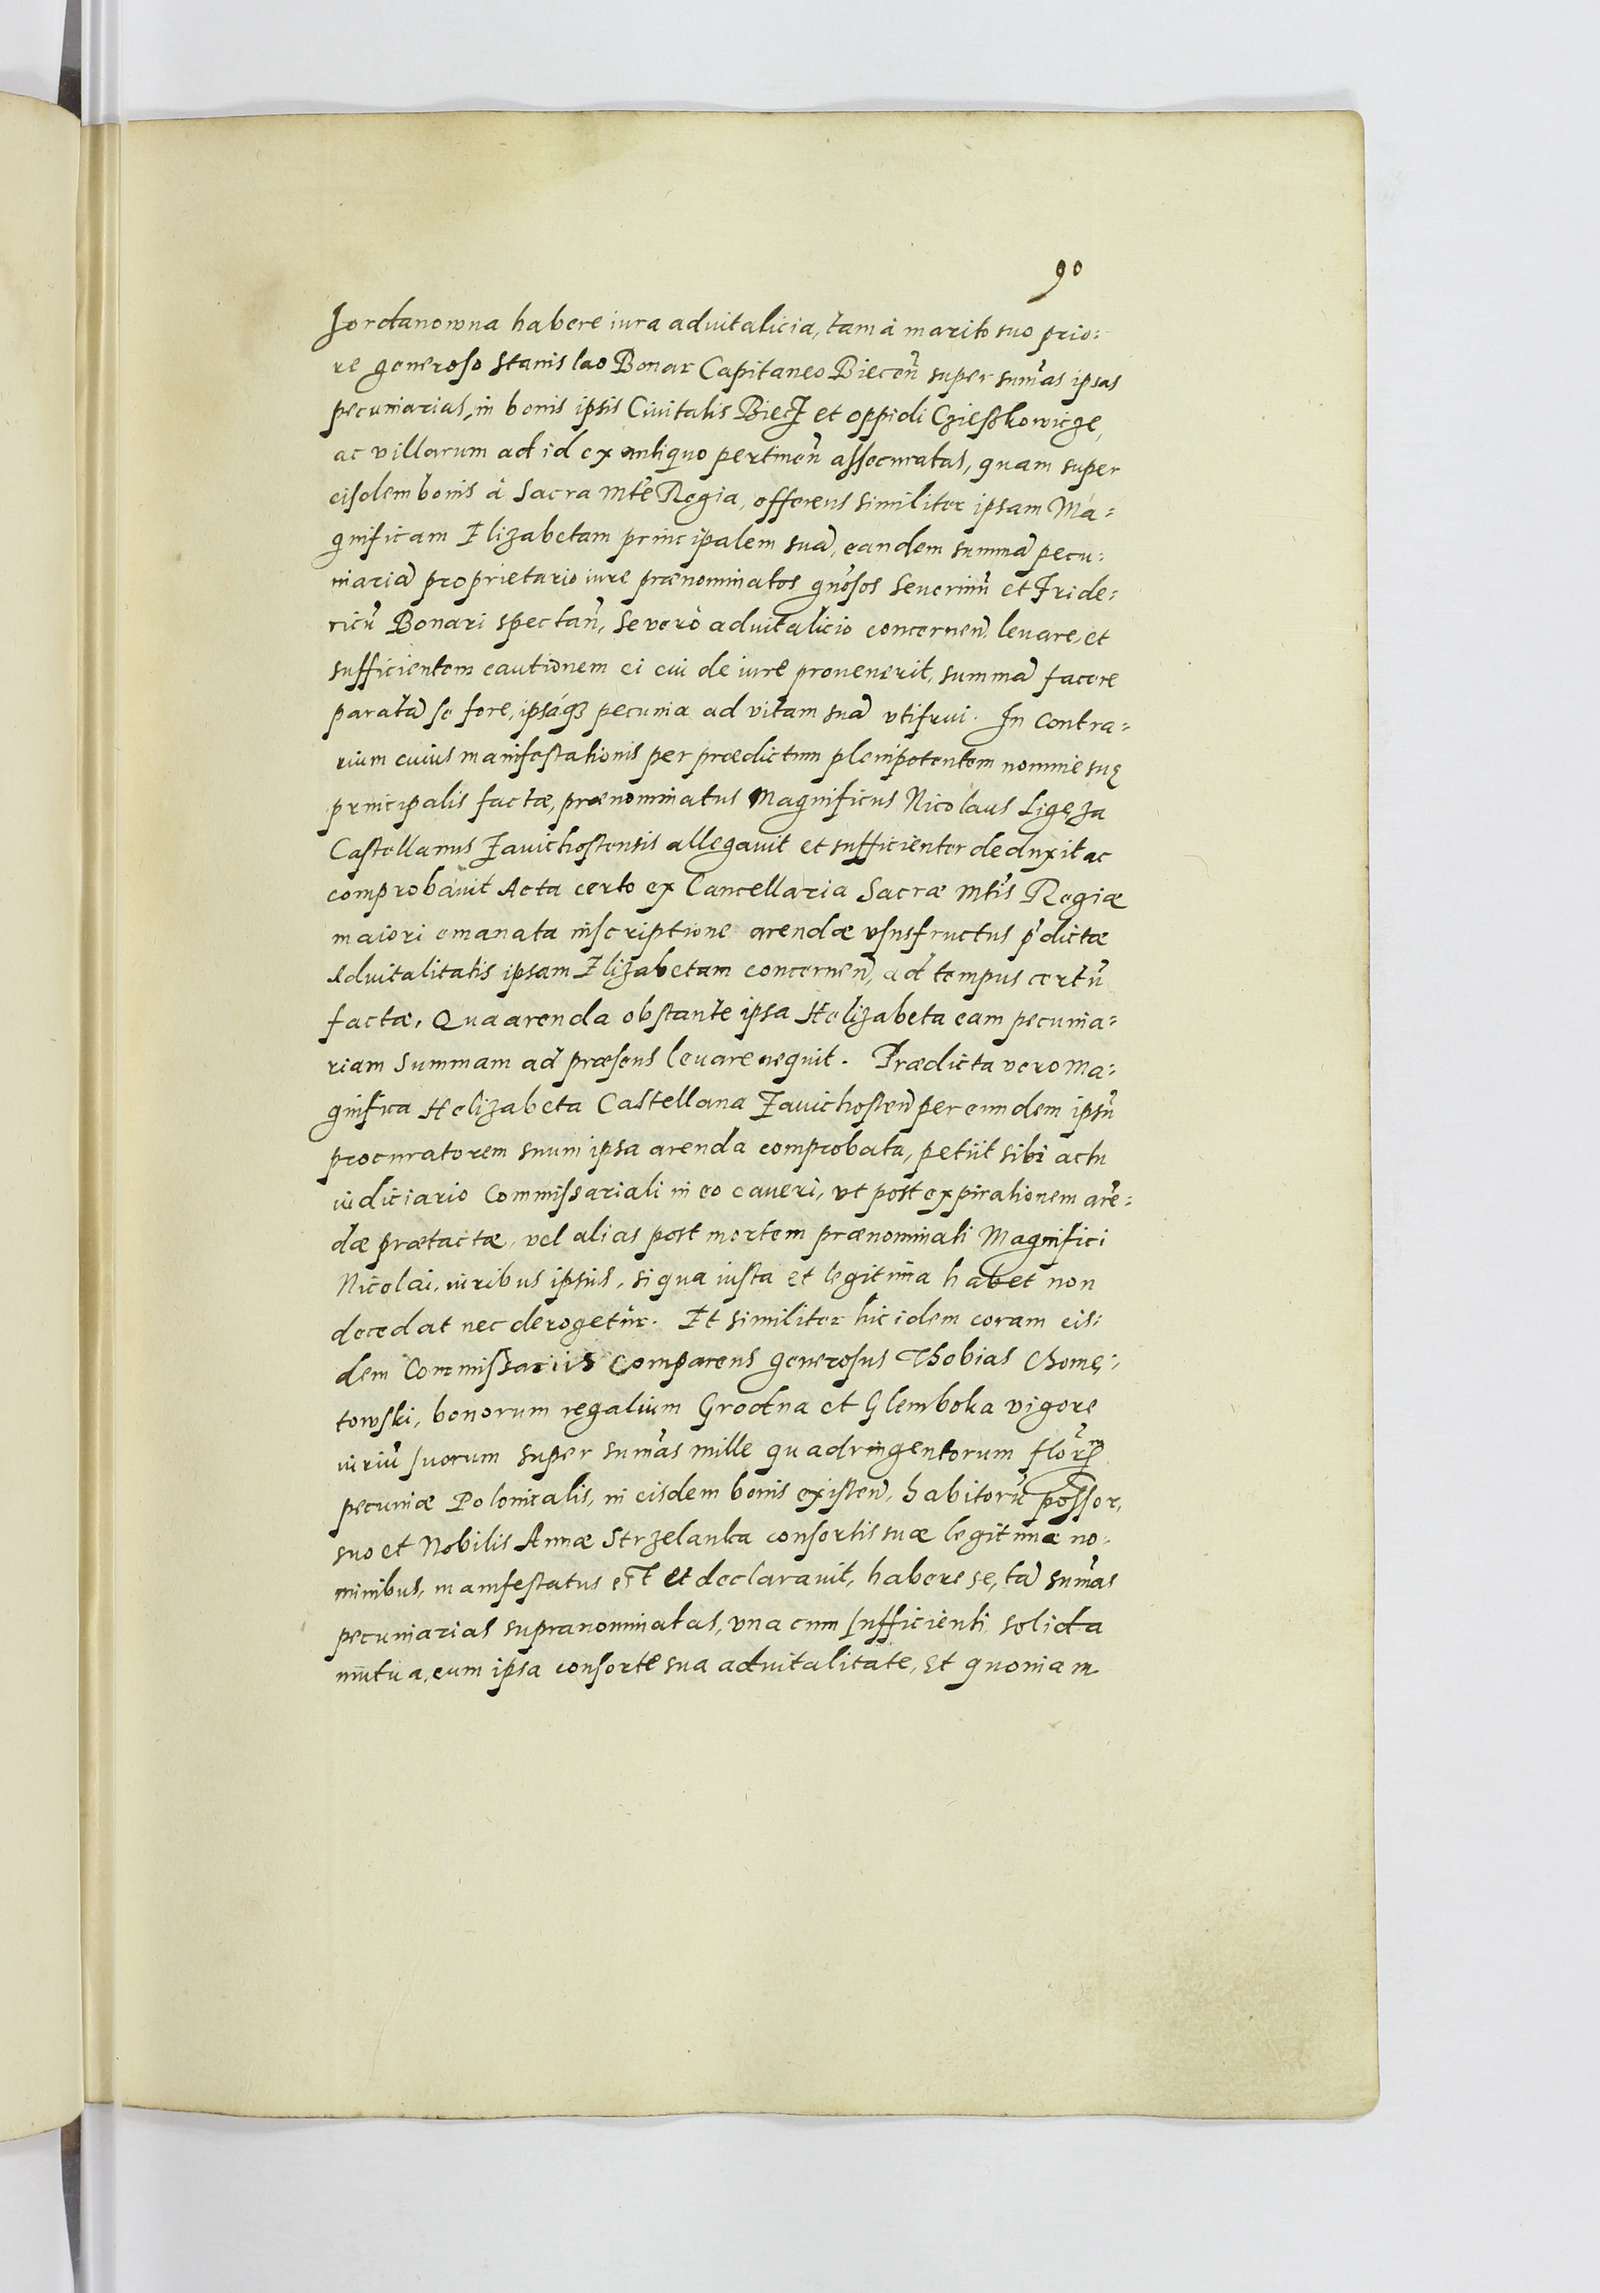 90
Jordanowna habere iura aduitalicia, tam à marito suo prio=
re generoso Stanislao Bonar Capitaneo Biecen̄ super sum̄as ipsas
pecuniarias, in bonis ipsis Ciuitatis Biecz et oppidi Czieszkowicze,
ac villarum ad id ex antiquo pertinen̄ assecuratas, quam super
eisdem bonis à Sacra Mtē Regia, offerens similiter ipsam Ma=
gnificam Elizabetam principalem suā, eandem summā pecu=
niariā proprietario iure prænominatos gn̄osos Seuerinū et Fride=
ricū Bonari spectan̄, se verò aduitalicio concernen̄ leuare, et
sufficientem cautionem ei cui de iure prouenerit, summā facere
paratā se fore, ipsáq3 pecunia ad vitam suā vtifrui. In contra=
rium cuius manifestationis per prædictum plenipotentem nomine suę
principalis factæ, prænominatus Magnificus Nicolaus Ligęza
Castellanus Zauichostensis allegauit et sufficienter deduxit ac
comprobauit Acta certo ex Cancellaria Sacræ Mtīs Regiæ
maiori emanata inscriptione arendæ vsusfructus p̄dictæ
Aduitalitatis ipsam Elizabetam concernen̄, ad tempus certū
factæ, Qua arenda obstante ipsa Helizabeta eam pecunia=
riam summam ad præsens leuare nequit. Prædicta vero Ma=
gnifica Helizabeta Castellana Zauichosten̄ per eundem ipsū
procuratorem suum ipsa arenda comprobata, petiit sibi actu
iudiciario Commissariali in eo caueri, vt post expirationem are=
dæ prætactæ, vel alias post mortem prænominati Magnifici
Nicolai, iuribus ipsius, si qua iusta et legitima habet non
decedat nec derogetur. Et similiter hic idem coram eis=
dem Commissariis Comparens generosus Thobias Chomę=
towski, bonorum regalium Grodna et Glemboka vigore
iuriū suorum super sum̄as mille quadringentorum flor̄
pecuniæ Polonicalis, in eisdem bonis existen̄, habitorū possor,
suo et Nobilis Annæ Strzelanka consortis suæ legitimæ no=
minibus, manifestatus est et declarauit, habere se, tā sum̄as
pecuniarias supranominatas, vna cum sufficienti solida
mutua, cum ipsa consorte sua aduitalitate, et quoniam